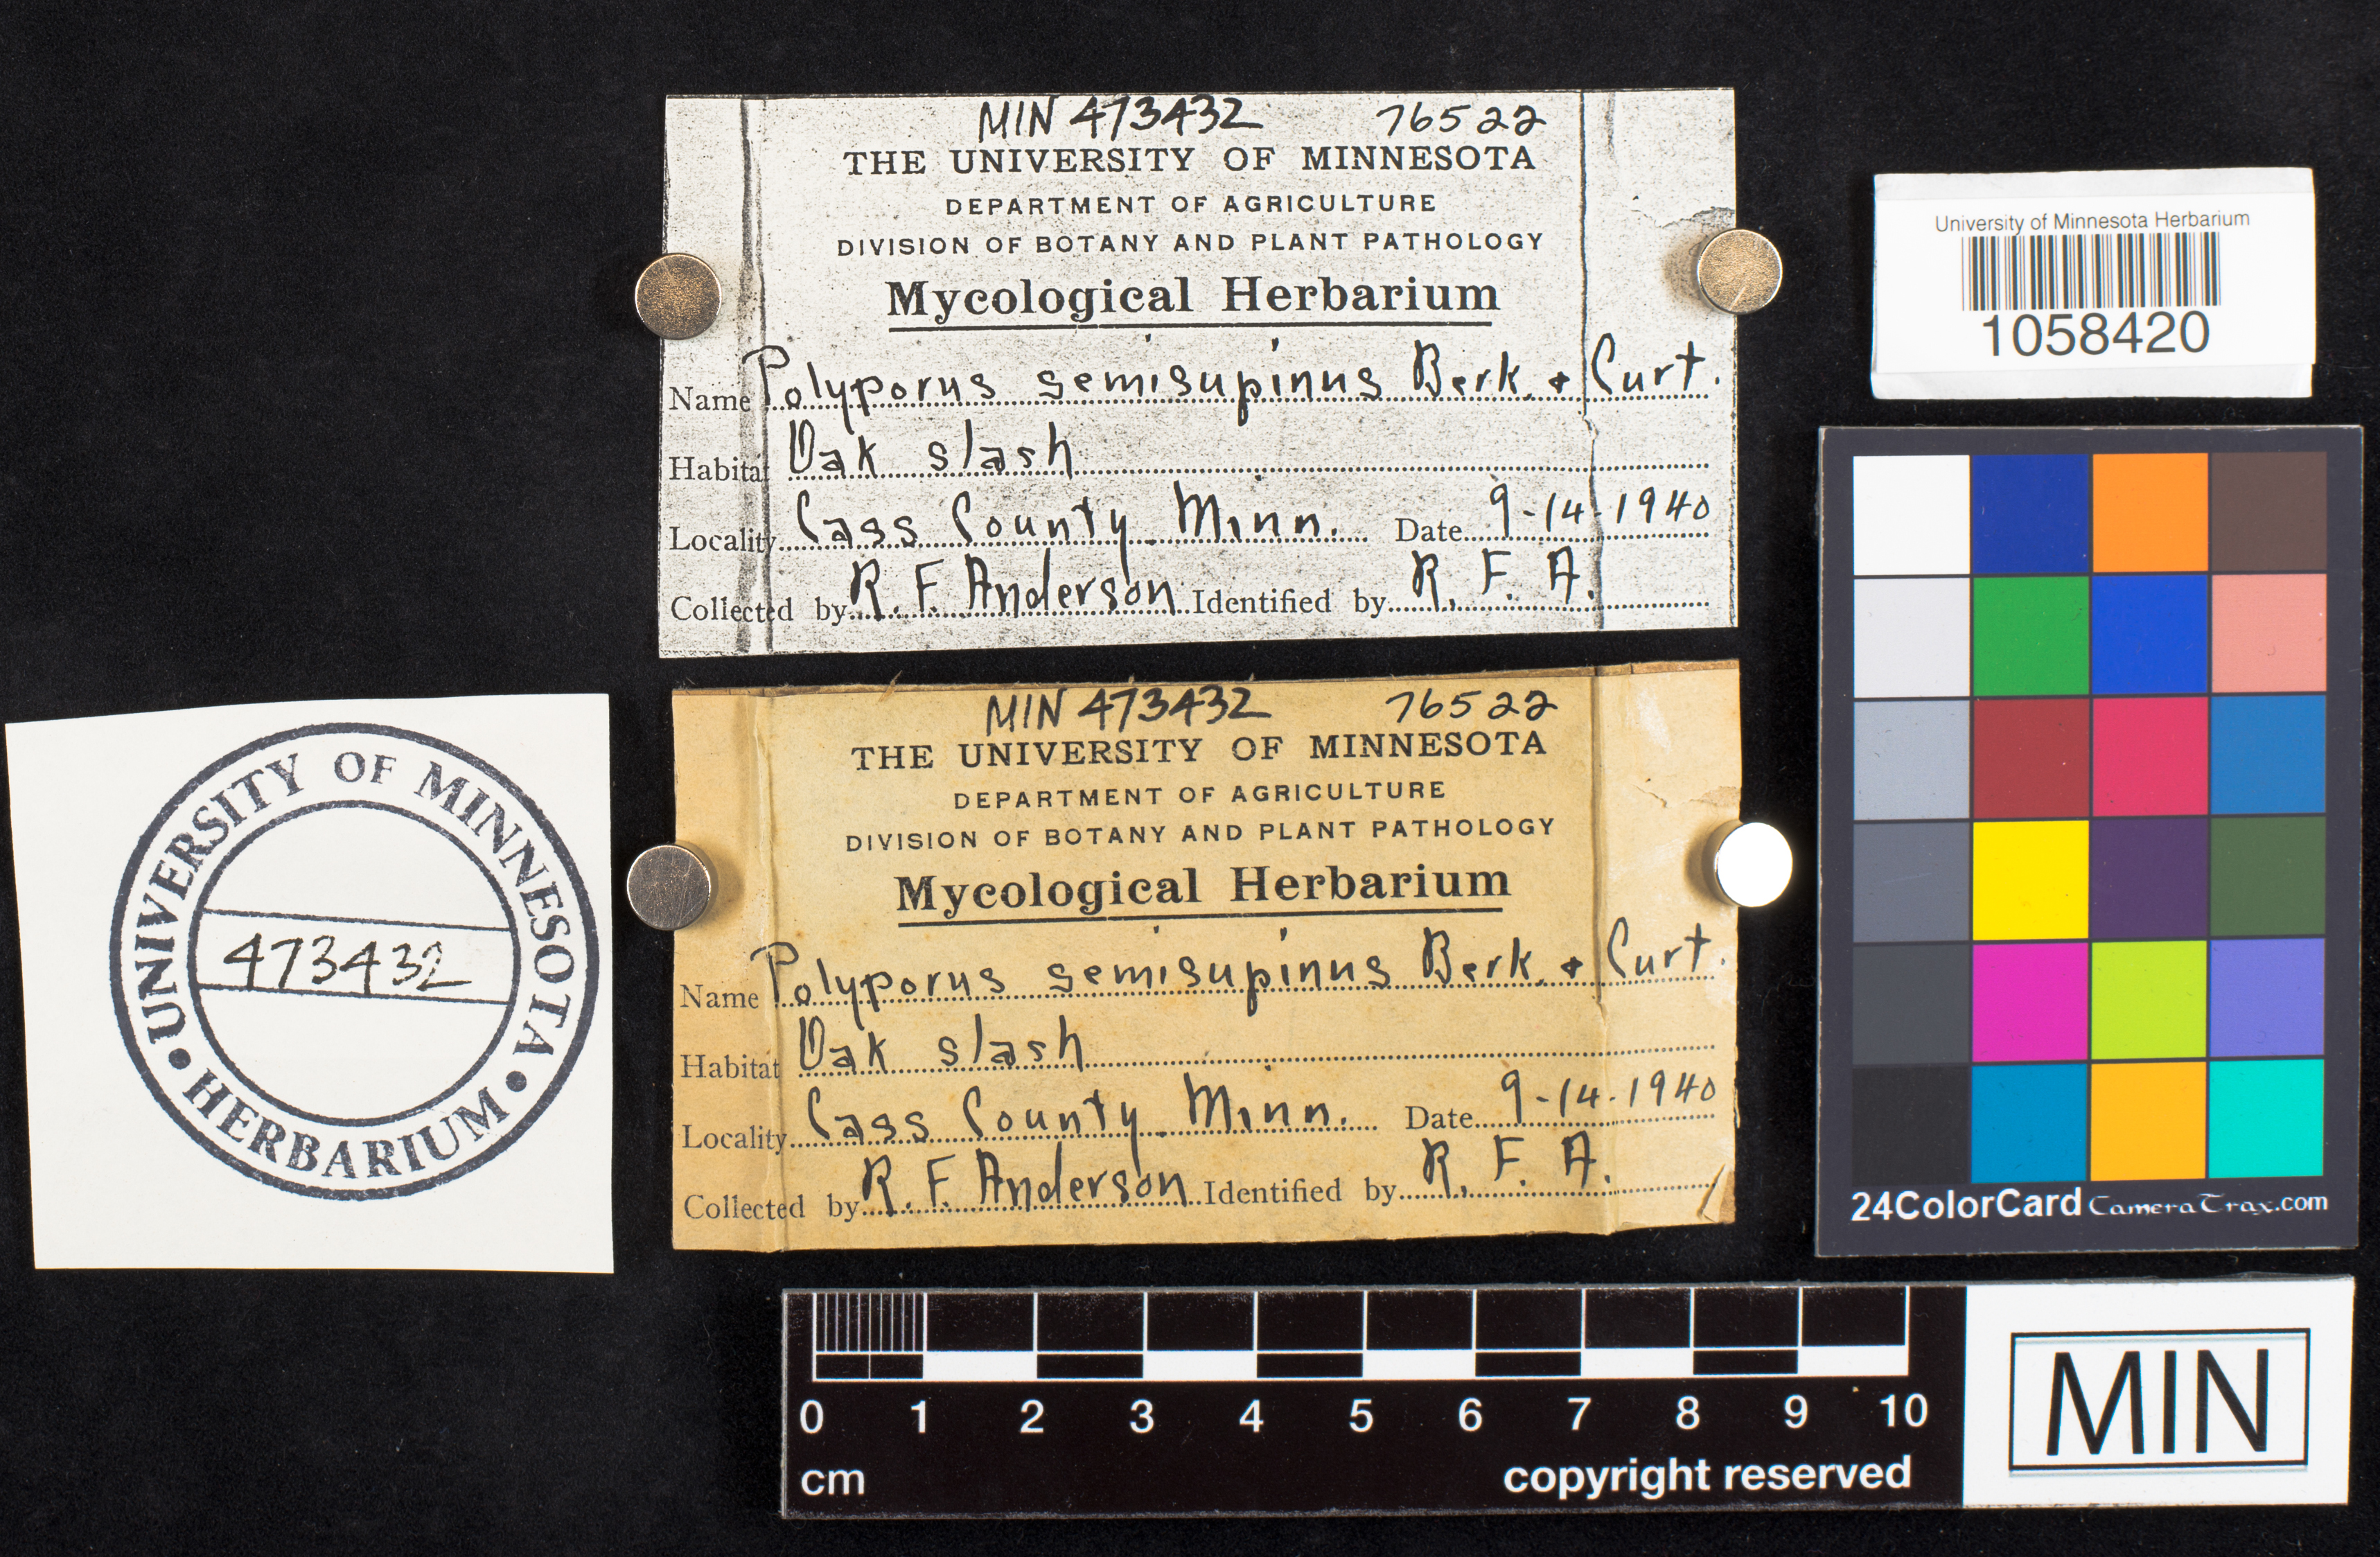 MIN 473432 76522
THE UNIVERSITY OF MINNESOTA
DEPARTMENT OF AGRICULTURE
DIVISION OF BOTANY AND PLANT PATHOLOGY
Mycological Herbarium
Name Polyporus semisupinus Berk. & Curt.
Habitat Oak slash
Locality Cass County Minn. Date 9-14-1940
Collected by R. F. Anderson Identified by R. F. A.
University of Minnesota Herbarium
1058420
MIN 473432 76522
THE UNIVERSITY OF MINNESOTA
DEPARTMENT OF AGRICULTURE
DIVISION OF BOTANY AND PLANT PATHOLOGY
Mycological Herbarium
Name Polyporus semisupinus Berk. & Curt.
Habitat Oak slash
Locality Cass County Minn. Date 9-14-1940
Collected by R. F. Anderson Identified by R. F. A.
UNIVERSITY OF MINNESOTA
473432
• HERBARIUM •
24ColorCard CameraTrax.com
0 1 2 3 4 5 6 7 8 9 10
cm copyright reserved
MIN